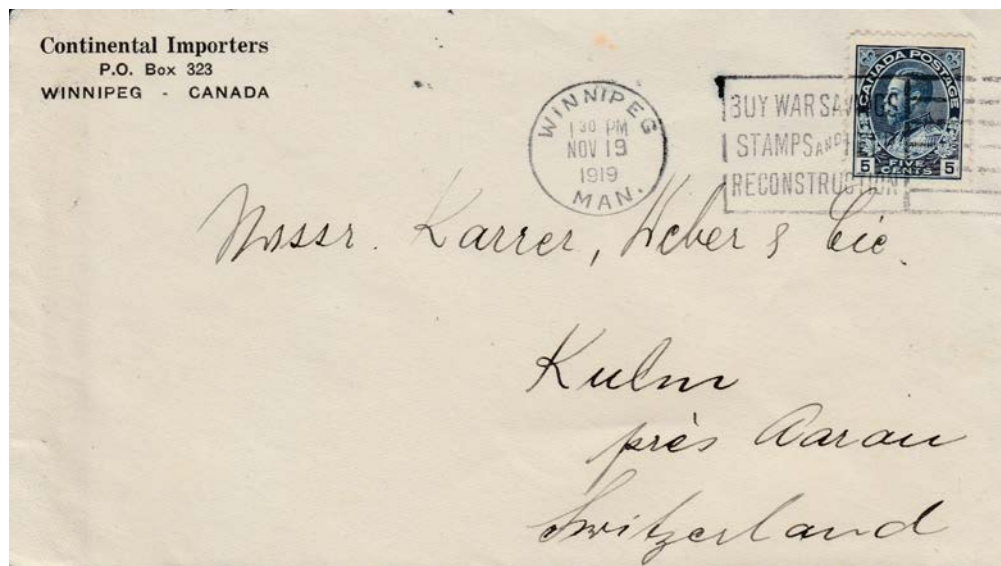 Continental Importers
P.O. Box 323
WINNIPEG - CANADA
WINNIPEG
1 30 PM
NOV 19
1919
MAN.
BUY WAR SAVINGS
STAMPS AND
RECONSTRUCTION
CANADA POSTAGE
5 FIVE CENTS 5
Messr. Karrer, Weber & Cie.
Kulm
près Aarau
Switzerland